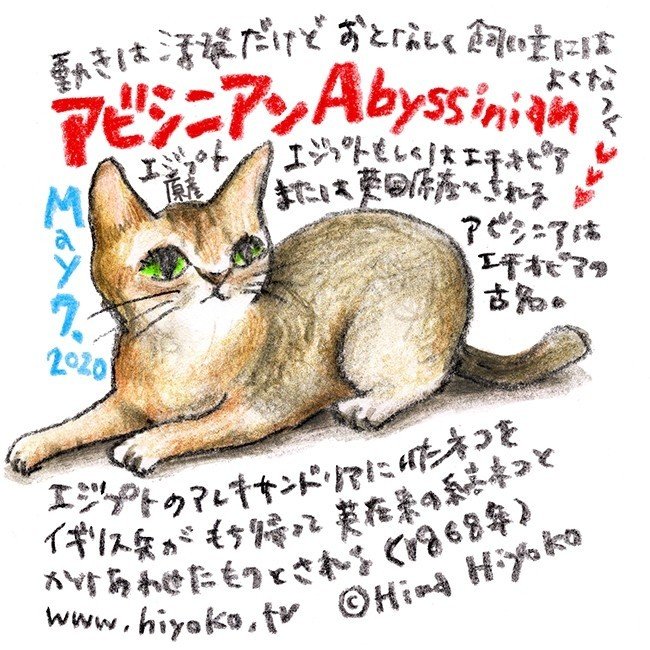 動きは活発だけど おとなしく 飼い主には
よくなつく
アビシニアン Abyssinian
エジプト
原産
エジプトもしくはエチオピア
または英国原産とされる
アビシニアは
エチオピアの
古名。
May 7. 2020
エジプトのアレキサンドリアにいたネコを
イギリス兵がもち帰って 英在来の猫ネコと
かけあわせたものとされる (1868年)
www.hiyoko.tv ©Hina Hiyoko